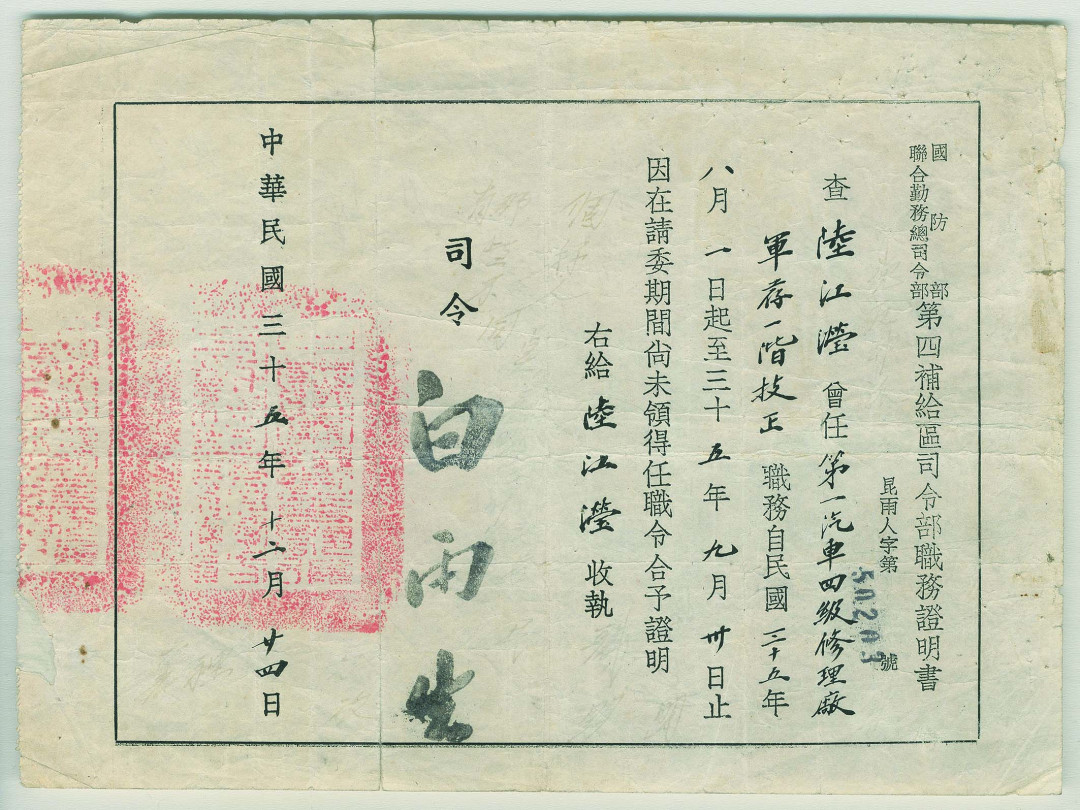 國防部
聯合勤務總司令部
第四補給區司令部職務證明書
昆雨人字第50203號
查陸江瀅曾任第一汽車四級修理廠
軍荐一階技正職務自民國三十五年
八月一日起至三十五年九月卅日止
因在請委期間尚未領得任職令合予證明
右給陸江瀅收執
司令白雨生
中華民國三十五年十二月廿四日